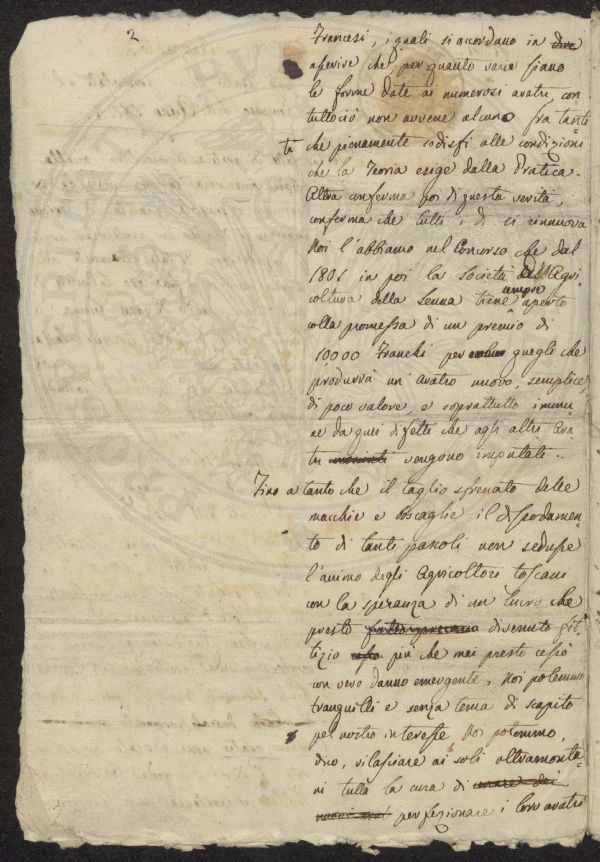 2
Francesi, i quali si accordano in dire
asserire che per quanto varie siano
le forme date ai numerosi aratri, con
tuttociò non avvene alcuno fra tanti
ti che pienamente sodisfi alle condizioni
che la Teoria esige dalla Pratica.
Altra conferma poi di questa verità,
conferma che tutti i dì si rinnuova
Noi l'abbiamo nel Concorso che dal
1801 in poi la Società dell'Agri
coltura della Senna tiene sempre aperto
colla promessa di un premio di
10000 Franchi per quegli che
produrrà un'aratro nuovo, semplice,
di poco valore, e soprattutto immu
ne da quei difetti che agli altri ara
tri vengono imputati..
Fino a tanto che il taglio sfrenato delle
macchie e boscaglie il dissodamen
to di tanti pascoli non sedusse
l'animo degli Agricoltori toscani
con la speranza di un lucro che
presto divenuto fit
tizio più che mai presto cessò
con vero danno emergente, Noi potemmo
tranquilli e senza tema di scapito
pel nostro interesse Noi potemmo,
dico, rilasciare ai soli oltramonta
ni tutta la cura di
perfezionare i loro aratri